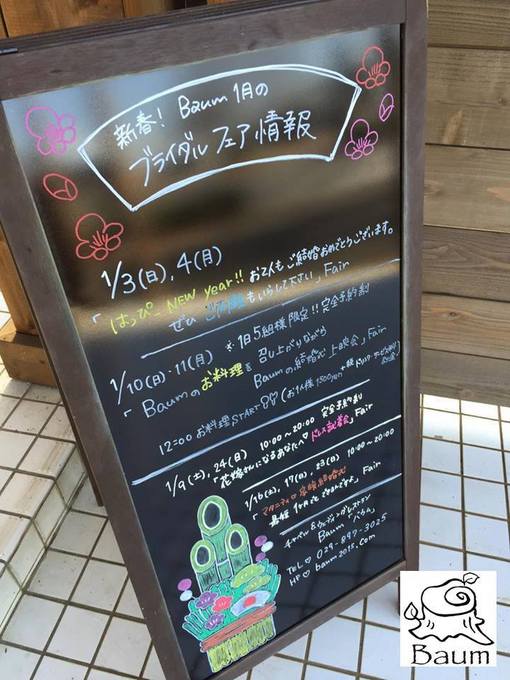 新春! Baum 1月の
ブライダルフェア情報
1/3(日), 4(月)
「はっぴー NEW year!! お正月もご結婚おめでとうございます。
ぜひ ご両親もいらして下さい」Fair
1/10(日)・11(月) ※1日5組様限定!! 完全予約制
「Baumのお料理を召し上がりながら
Baumの結婚式上映会」Fair
12:00 お料理START (お1人様 1500yen+税
1/9(土), 24(日) 10:00～20:00 完全予約制
「花嫁さんになるあなたへ♡ドレス試着会」Fair
1/16(土), 17(日), 23(土) 10:00～20:00
「マタニティ♡家族結婚式
最短1ヶ月でできるんです」Fair
チャペル&ウェディングレストラン
Baum「バウム」
TEL♡ 029-897-3025
HP♡ baum2015.com
Baum